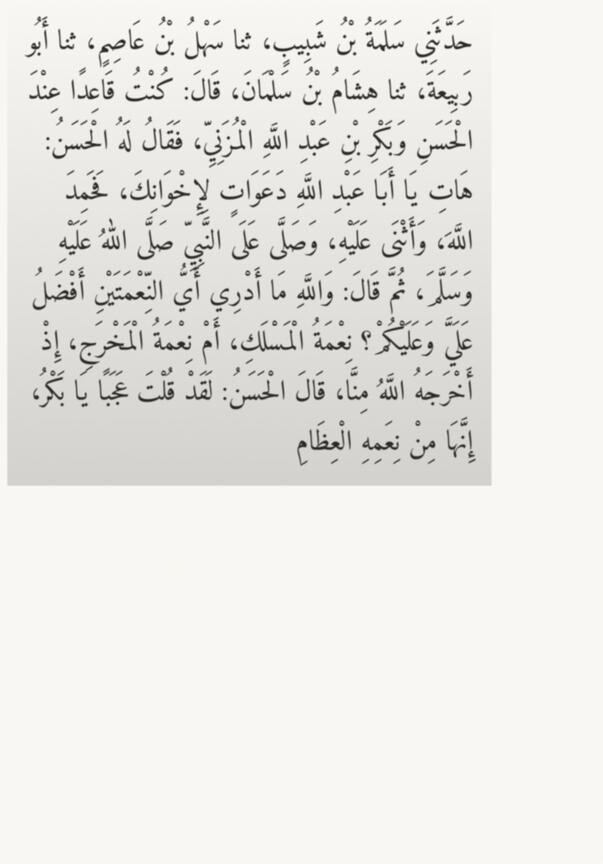 حَدَّثَنِي سَلَمَةُ بْنُ شَبِيبٍ، ثنا سَهْلُ بْنُ عَاصِمٍ، ثنا أَبُو
رَبِيعَةَ، ثنا هِشَامُ بْنُ سَلْمَانَ، قَالَ: كُنْتُ قَاعِدًا عِنْدَ
الْحَسَنِ وَبَكْرِ بْنِ عَبْدِ اللَّهِ الْمُزَنِيِّ، فَقَالُ لَهُ الْحَسَنُ:
هَاتِ يَا أَبَا عَبْدِ اللَّهِ دَعَوَاتٍ لِإِخْوَانِكَ، فَحَمِدَ
اللَّهَ، وَأَثْنَى عَلَيْهِ، وَصَلَّى عَلَى النَّبِيِّ صَلَّى اللهُ عَلَيْهِ
وَسَلَّمَ، ثُمَّ قَالَ: وَاللَّهِ مَا أَدْرِي أَيُّ النِّعْمَتَيْنِ أَفْضَلُ
عَلَيَّ وَعَلَيْكُمْ؟ نِعْمَةُ الْمَسْلَكِ، أَمْ نِعْمَةُ الْمَخْرَجِ، إِذْ
أَخْرَجَهُ اللَّهُ مِنَّا، قَالَ الْحَسَنُ: لَقَدْ قُلْتَ عَجَبًا يَا بَكْرُ،
إِنَّهَا مِنْ نِعَمِهِ الْعِظَامِ